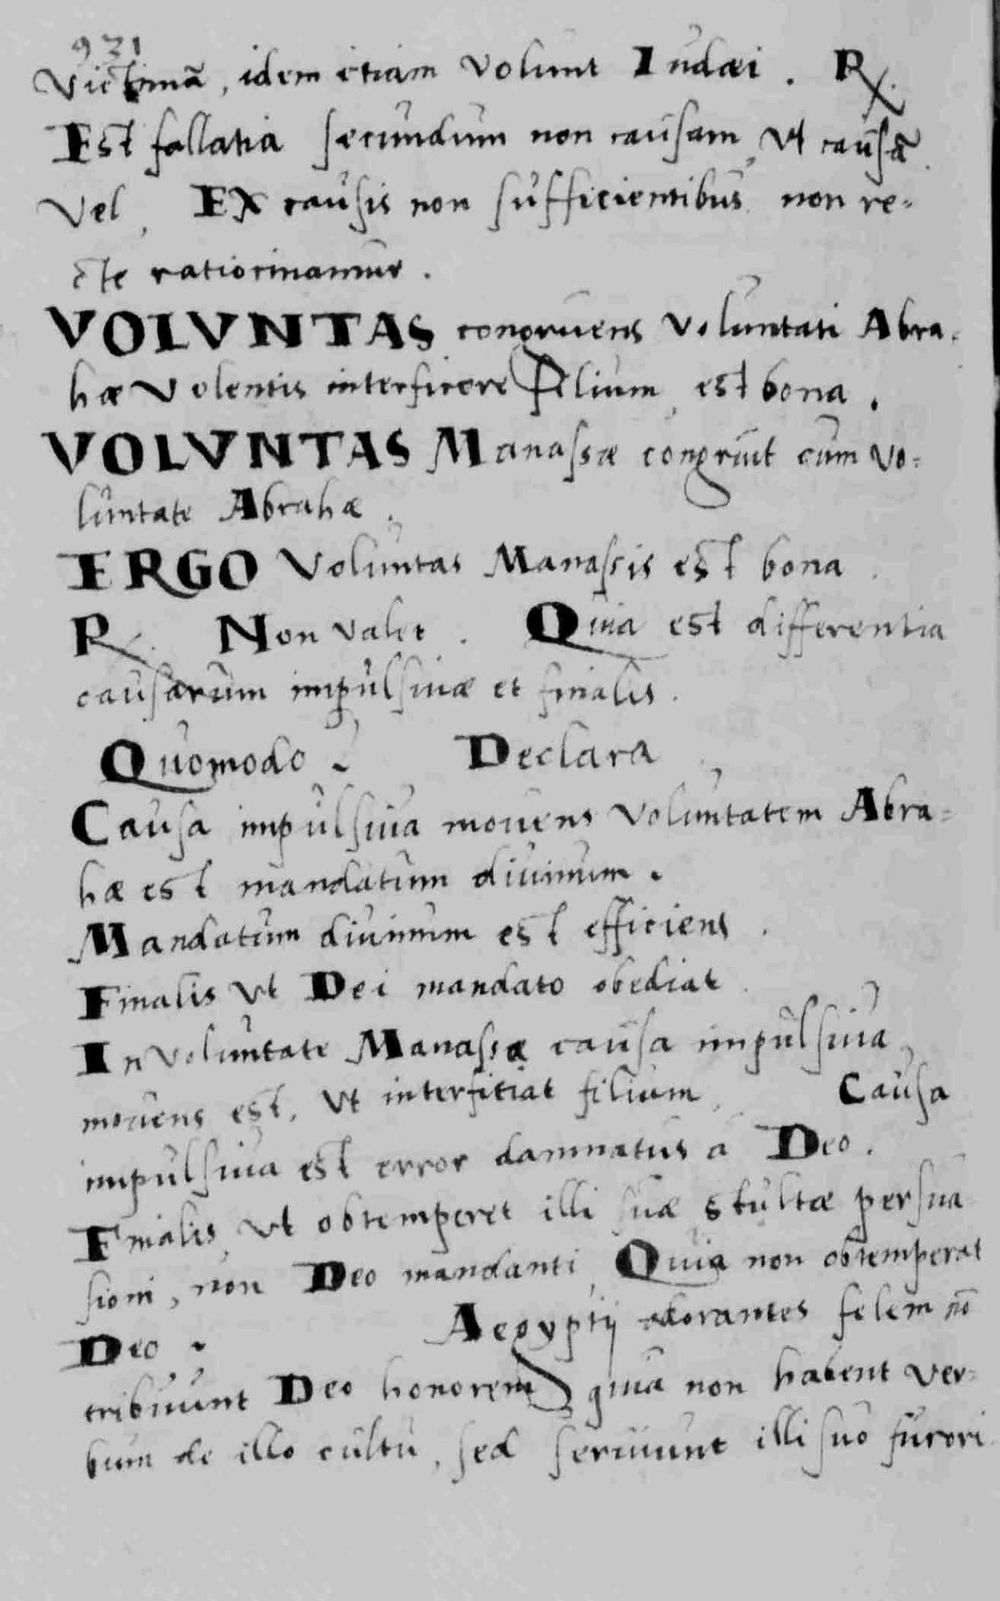 931
Victimā, idem etiam volunt Iudæi. R.
Est fallatia secundum non causam, ut causā
Vel, Ex causis non sufficientibus non re-
cte ratiocinamur.
VOLVNTAS congruens voluntati Abra-
hæ volentis interficere filium, est bona.
VOLVNTAS Manassæ congruit cum vo-
luntate Abrahæ.
ERGO Voluntas Manassis est bona.
R. Non valet. Quia est differentia
causarum impulsiuæ et finalis.
Quomodo. Declara
Causa impulsiua mouens voluntatem Abra-
hæ est mandatum diuinum.
Mandatum diuinum est efficiens.
Finalis ut Dei mandato obediat.
In voluntate Manassæ causa impulsiua
mouens est, ut interfitiat filium, Causa
impulsiua est error damnatus a Deo.
Finalis, ut obtemperet illi suæ stultæ persua
sioni, non Deo mandanti, Quia non obtemperat
Deo. Aegyptij adorantes felem nō
tribuunt Deo honorem, quia non habent ver-
bum de illo cultu, sed seruiunt illi suo furori